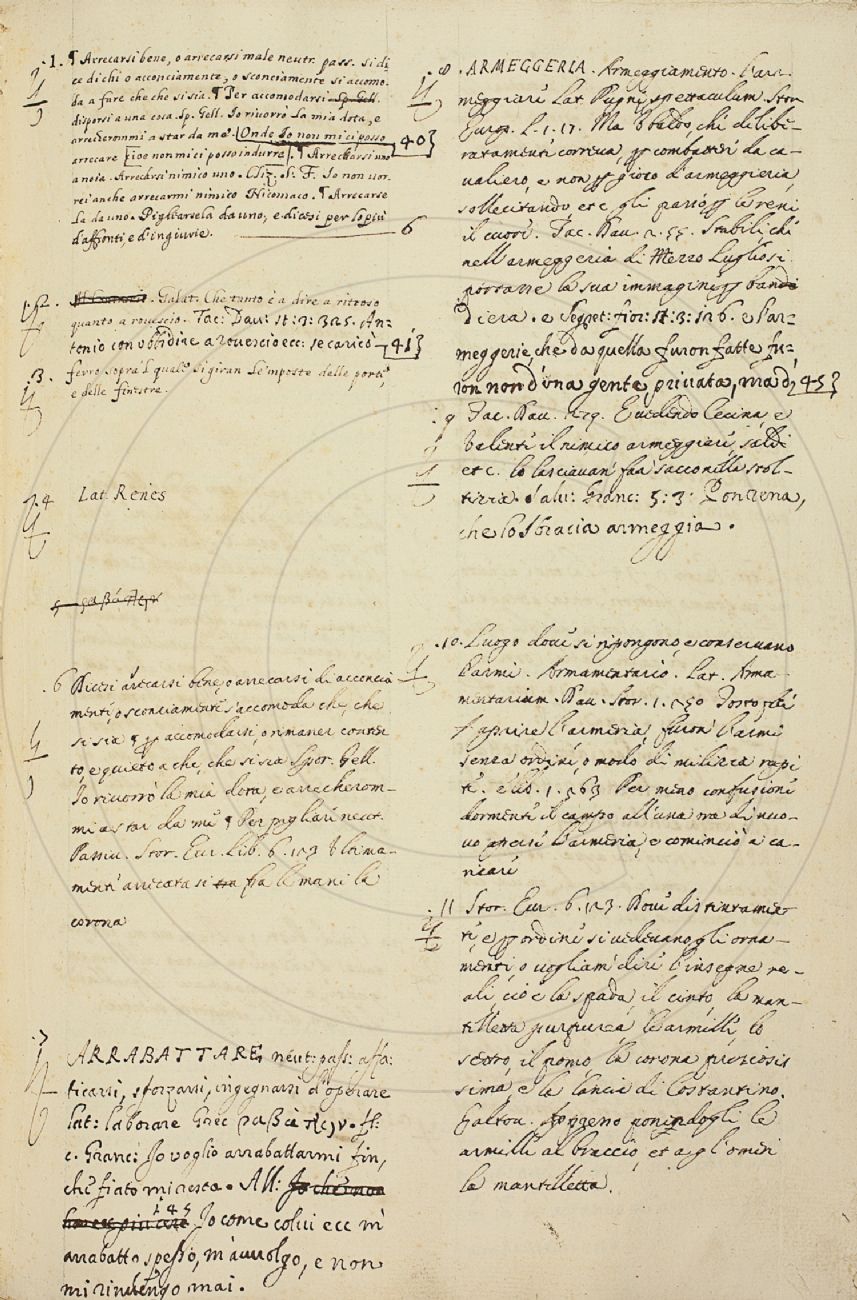 .1. ¶ Arrecarsi bene, o arrecarsi male neutr. pass. si di
ce di chi o acconciamente, o sconciamente si accomo-
da a fare che che si sia. ¶ Per accomodarsi Sp. Gell.
disporsi a una cosa. Sp. Gell. Io rivorrò la mia dota, e
arrecherommi a star da me. Onde Io non mi ci posso
arrecare cioè non mi ci posso indurre. ¶ Arrecharsi uno 40
a noia. Arrecarsi nimico uno. Cliz. S. F. Io non vor-
rei anche arrecarmi nimico Nicomaco. ¶ Arrecarse
la da uno. Pigliarsela da uno, e dicesi per lo più
d'affronti, e d'ingiurie. 6
.2. Galat: Che tanto è a dire a ritroso
quanto a rovescio. Tac: Dav: st: 3: 325. An-
tonio con ubbidire a rovescio ecc: se caricò 41
.3. ferro sopra'l quale si giran le imposte delle porte,
e delle finestre.
.4 Lat. Renes
5
.6 Dicesi arecarsi bene, o arrecarsi di acconcia
menti, o sconciamenti s'accomoda che, che
si sia ¶ p accomodarsi, o rimaner conten
to, e quieto a che, che si sia Spor. Gell.
Io rivorrò la mia dota, e arrecherom-
mi a star da me ¶ Per pigliare neut.
Passiv. Stor. Eur. Lib. 6. 123 Ultima-
menti arrecatasi tra fra le mani la
corona
.7 ARRABATTARE, neut: pass: affa:
ticarsi, sforzarsi, ingegnarsi d'operare
lat: laborare Grec
c. Granc: Io voglio arrabattarmi fin,
che fiato mi resta. All: Io che non
145 Io come colui ecc m'
arrabatto spesso, m'avvolgo, e non
mi rinvengo mai.
.8. ARMEGGERIA. Armeggiamento. L'ar-
meggiare Lat. Pugne spettaculum Stor.
Europ. L. 1. 17. Ma Ubaldo, che delibe-
ratamente correva, p combatter da ca-
valiero, e non p gioco d'armeggieria,
sollecitando etc. gli passò p le reni
il cuore. Tac. Dav. 2. 55. Stabilì che
nell'armeggeria di Mezzo Luglio si
portasse la sua immagine p bandi
diera. e Segret: fior: st: 3: 126. e l'ar-
meggerie, che da quella furon fatte fu-
ron non d'una gente privata, ma d 45
.9 Tac. Dav. Vedendo Cecina, e
Valente il nimico armeggiare, saldi
etc. lo lasciavan far sacco nella stol-
tizia. Salv: Granc: 5: 3: Ponzena,
che lo sbracia armeggia.
.10. Luogo dove si ripongono, e conservano
l'armi. Armamentario. Lat. Arma-
mentarium. Dav. Stor. 1. 250 Tosto fe
aprire l'armeria, furon l'armi
senza ordine, o modo di milizia rapi
te. e lib. 1. 263 Per meno confusione
dormente il campo all'una ora di nuo-
vo aperse l'armeria, e cominciò a ca-
ricare
.11 Stor. Eur. 6. 123. Dove distintamen
te, e p ordine si vedevano gli orna-
menti, o vogliam dire l'insegne re-
ali, ciò è la spada, il cinto, la man-
tilletta purpurea le armille, lo
scetro, il pomo, la corona preziosis
sima, e la lancia di Costantino.
E altrov. ponendogli le
armille al braccio, et agl'omeri
la mantilletta.